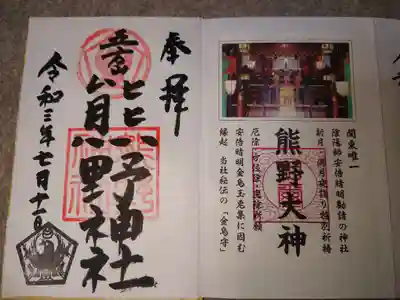 奉拝
熊野神社
令和三年七月十一日
関東唯一
陰陽師安倍晴明勧請の神社
新月・満月夜詣り特別祈祷
熊野大神
厄除・方位除・八方除祈願
安倍晴明金烏玉兎集に因む
縁起 当社秘伝の「金烏守」